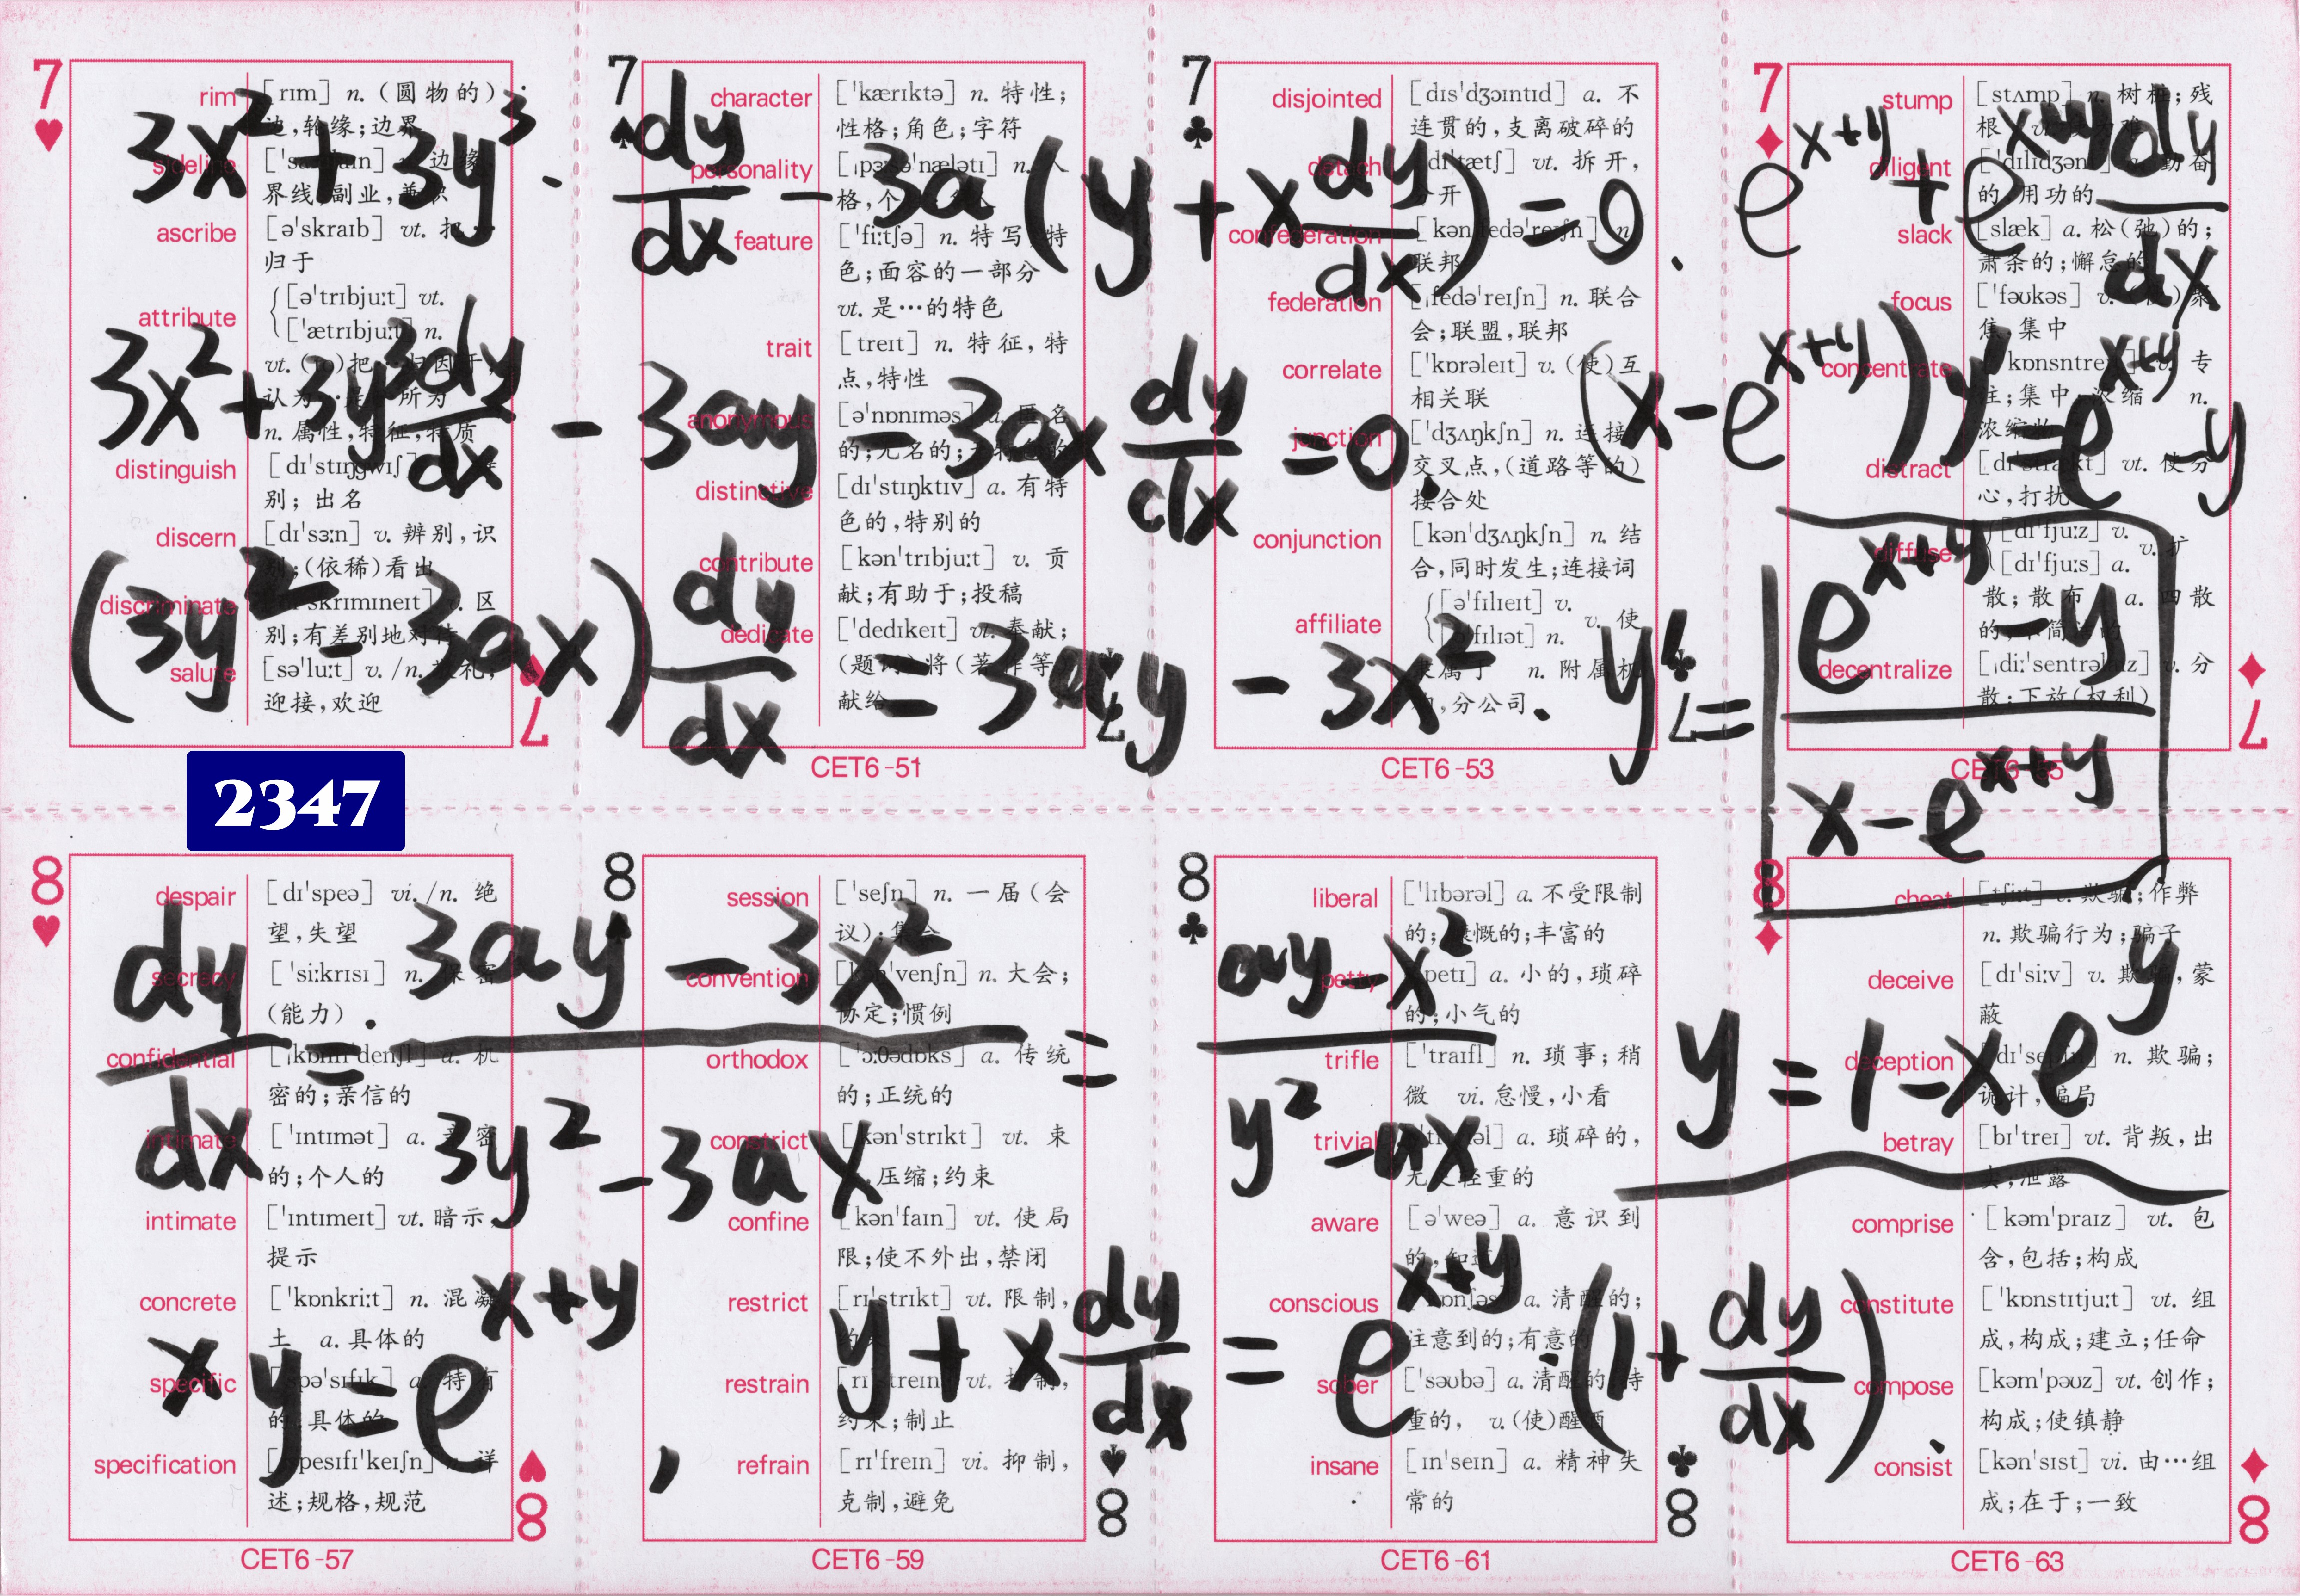 3x² + 3y³ · dy/dx − 3a(y + x dy/dx) = 0.
3x² + 3y³ dy/dx − 3ay − 3ax dy/dx = 0.
(3y² − 3ax) dy/dx = 3ay − 3x².
e^{x+y} + e^{x+y} dy/dx
(x − e^{x+y}) y' = e^{x+y} − y
y' = (e^{x+y} − y)/(x − e^{x+y})
2347
dy/dx = (3ay − 3x²)/(3y² − 3ax) = (ay − x²)/(y² − ax)
y = 1 − xe^y
xy = e^{x+y}, y + x dy/dx = e^{x+y} · (1 + dy/dx).
7
rim [rɪm] n. (圆物的)
边,轮缘;边界
sideline
界线 副业,兼职
ascribe [ə'skraɪb] vt. 把…
归于
attribute [ə'trɪbjuːt] vt.
['ætrɪbjuːt] n.
vt.
n. 属性,特征,特质
distinguish
别;出名
discern [dɪ'sɜːn] v. 辨别,识
别;(依稀)看出
discriminate 区
别;有差别地对待
salute [sə'luːt] v./n.
迎接,欢迎
7
7
character ['kærɪktə] n. 特性;
性格;角色;字符
personality
feature ['fiːtʃə] n. 特写;特
色;面容的一部分
vt. 是…的特色
trait [treɪt] n. 特征,特
点,特性
anonymous [ə'nɒnɪməs] a. 匿名
的;无名的
distinctive [dɪ'stɪŋktɪv] a. 有特
色的,特别的
contribute [kən'trɪbjuːt] v. 贡
献;有助于;投稿
dedicate ['dedɪkeɪt] vt. 奉献;
献给
7
CET6-51
7
disjointed [dɪs'dʒɔɪntɪd] a. 不
连贯的,支离破碎的
detach vt. 拆开,
分开
confederation
联邦
federation [ˌfedə'reɪʃn] n. 联合
会;联盟,联邦
correlate ['kɒrəleɪt] v. (使)互
相关联
junction ['dʒʌŋkʃn] n. 连接,
交叉点,(道路等的)
接合处
conjunction [kən'dʒʌŋkʃn] n. 结
合,同时发生;连接词
affiliate [ə'fɪlɪeɪt] v.
[ə'fɪlɪət] n. v. 使
隶属于 n. 附属机
构,分公司
7
CET6-53
7
stump [stʌmp] n. 树桩;残
根
diligent 勤奋
的,用功的
slack [slæk] a. 松(弛)的;
萧条的;懈怠的
focus ['fəʊkəs] 聚
焦,集中
concentrate 专
注;集中 浓缩 n.
distract vt. 使分
心,打扰
diffuse [dɪ'fjuːz] v.
[dɪ'fjuːs] a. v. 扩
散;散布 a. 四散
decentralize v. 分
散;下放(权利)
7
8
despair [dɪ'speə] vi./n. 绝
望,失望
secrecy ['siːkrɪsɪ] n. 保密
(能力)
confidential a. 机
密的;亲信的
intimate ['ɪntɪmət] a. 亲密
的;个人的
intimate ['ɪntɪmeɪt] vt. 暗示,
提示
concrete ['kɒnkriːt] n. 混凝
土 a. 具体的
specific [spə'sɪfɪk] a. 特有
的 具体的
specification n. 详
述;规格,规范
8
CET6-57
8
session ['seʃn] n. 一届(会
议);集会
convention [kən'venʃn] n. 大会;
协定;惯例
orthodox ['ɔːθədɒks] a. 传统
的;正统的
constrict [kən'strɪkt] vt. 束
压缩;约束
confine [kən'faɪn] vt. 使局
限;使不外出,禁闭
restrict [rɪ'strɪkt] vt. 限制,
restrain [rɪ'streɪn] vt. 抑制,
约束;制止
refrain [rɪ'freɪn] vi. 抑制,
克制,避免
8
CET6-59
8
liberal ['lɪbərəl] a. 不受限制
的;慷慨的;丰富的
petty ['petɪ] a. 小的,琐碎
的;小气的
trifle ['traɪfl] n. 琐事;稍
微 vi. 怠慢,小看
trivial ['trɪvɪəl] a. 琐碎的,
无足轻重的
aware [ə'weə] a. 意识到
的,知道
conscious ['kɒnʃəs] a. 清醒的;
注意到的;有意的
sober ['səʊbə] a. 清醒的,持
重的, v.(使)醒酒
insane [ɪn'seɪn] a. 精神失
常的
8
CET6-61
8
cheat [tʃiːt] v. 欺骗;作弊
n. 欺骗行为;骗子
deceive [dɪ'siːv] v. 欺骗,蒙
蔽
deception n. 欺骗;
诡计,骗局
betray [bɪ'treɪ] vt. 背叛,出
卖;泄露
comprise [kəm'praɪz] vt. 包
含,包括;构成
constitute ['kɒnstɪtjuːt] vt. 组
成,构成;建立;任命
compose [kəm'pəʊz] vt. 创作;
构成;使镇静
consist [kən'sɪst] vi. 由…组
成;在于;一致
8
CET6-63